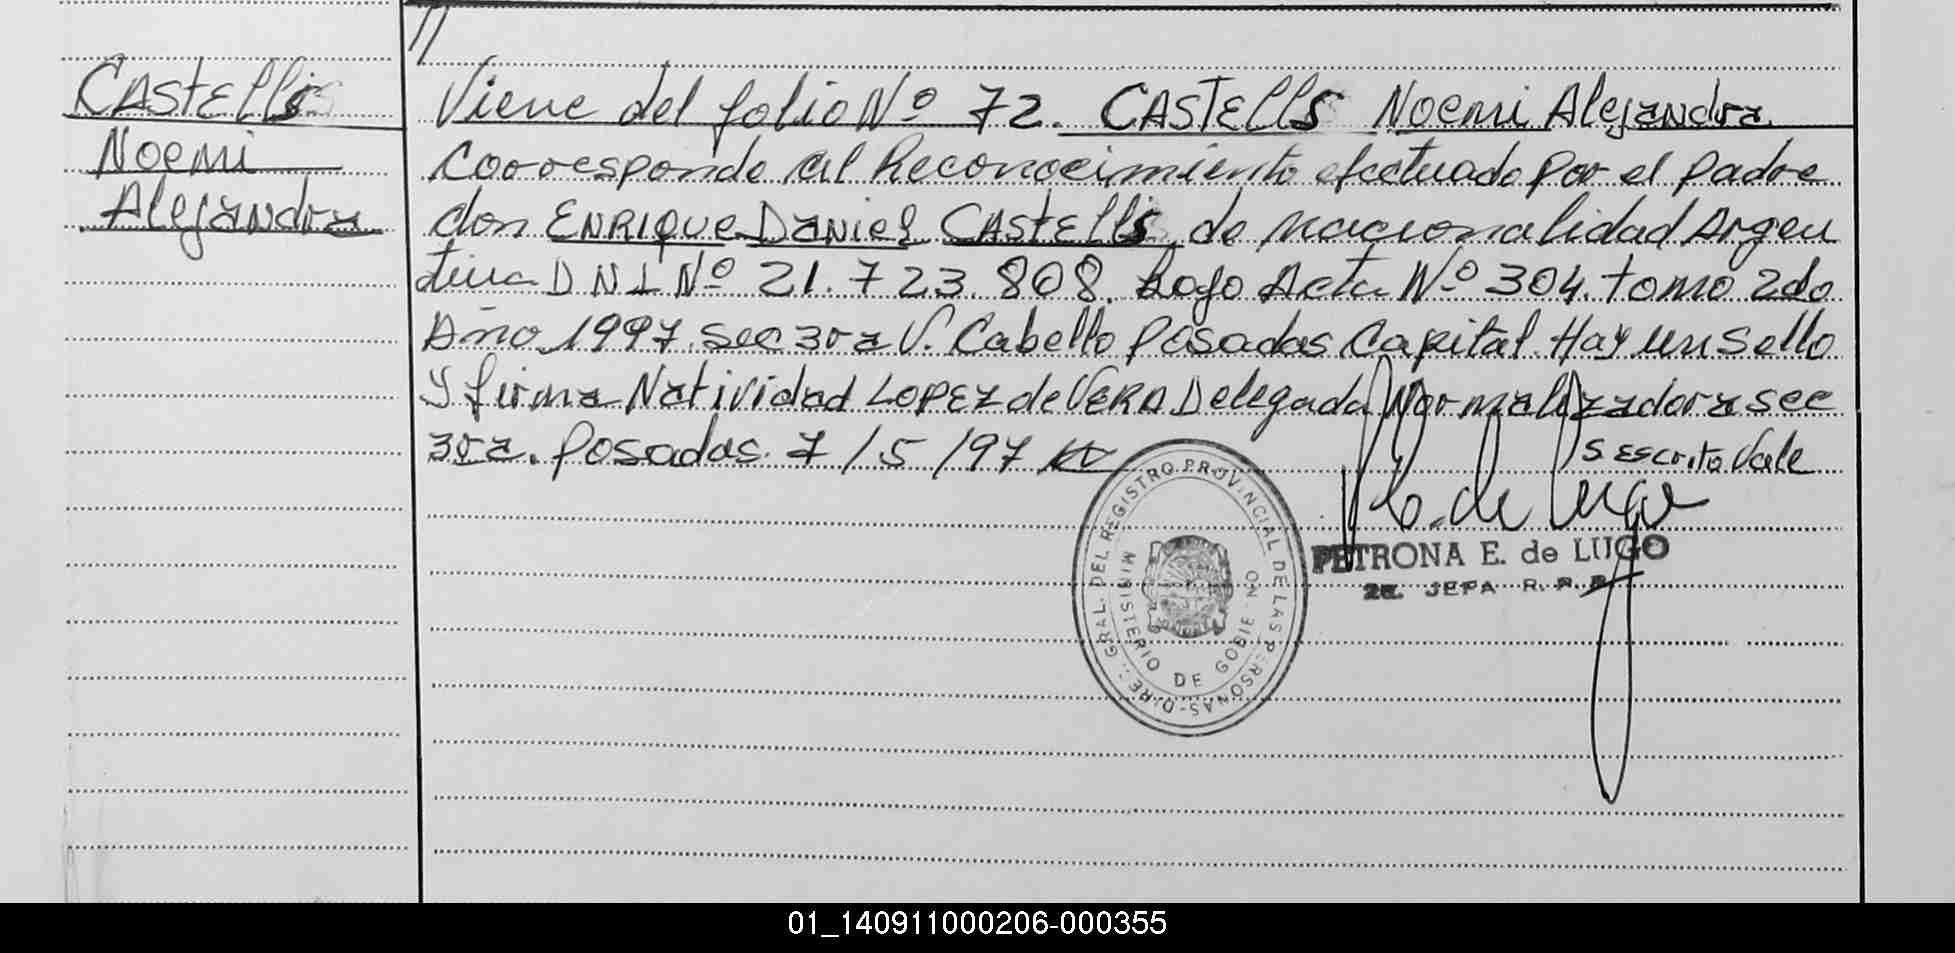 CASTElls
Noemi
Alejandra
//
Viene del folio Nº 72. CASTElls Noemi Alejandra
Corresponde al Reconocimiento efectuado por el padre
don ENRIQUE DANIEL CASTElls de nacionalidad Argen
tina D N I Nº 21.723.808. bajo Acta Nº 304. tomo 2do
Año 1997. sec 3ra V. Cabello Posadas Capital. Hay un Sello
y firma Natividad LOPEZ de VERA Delegada Normalizadora sec
3ra. Posadas. 7/5/97
S Escrito Vale
P E. de Lugo
PETRONA E. de LUGO
2a. JEFA R. P. P.
DIREC. GRAL. DEL REGISTRO PROVINCIAL DE LAS PERSONAS
MINISTERIO DE GOBIERNO
01_140911000206-000355